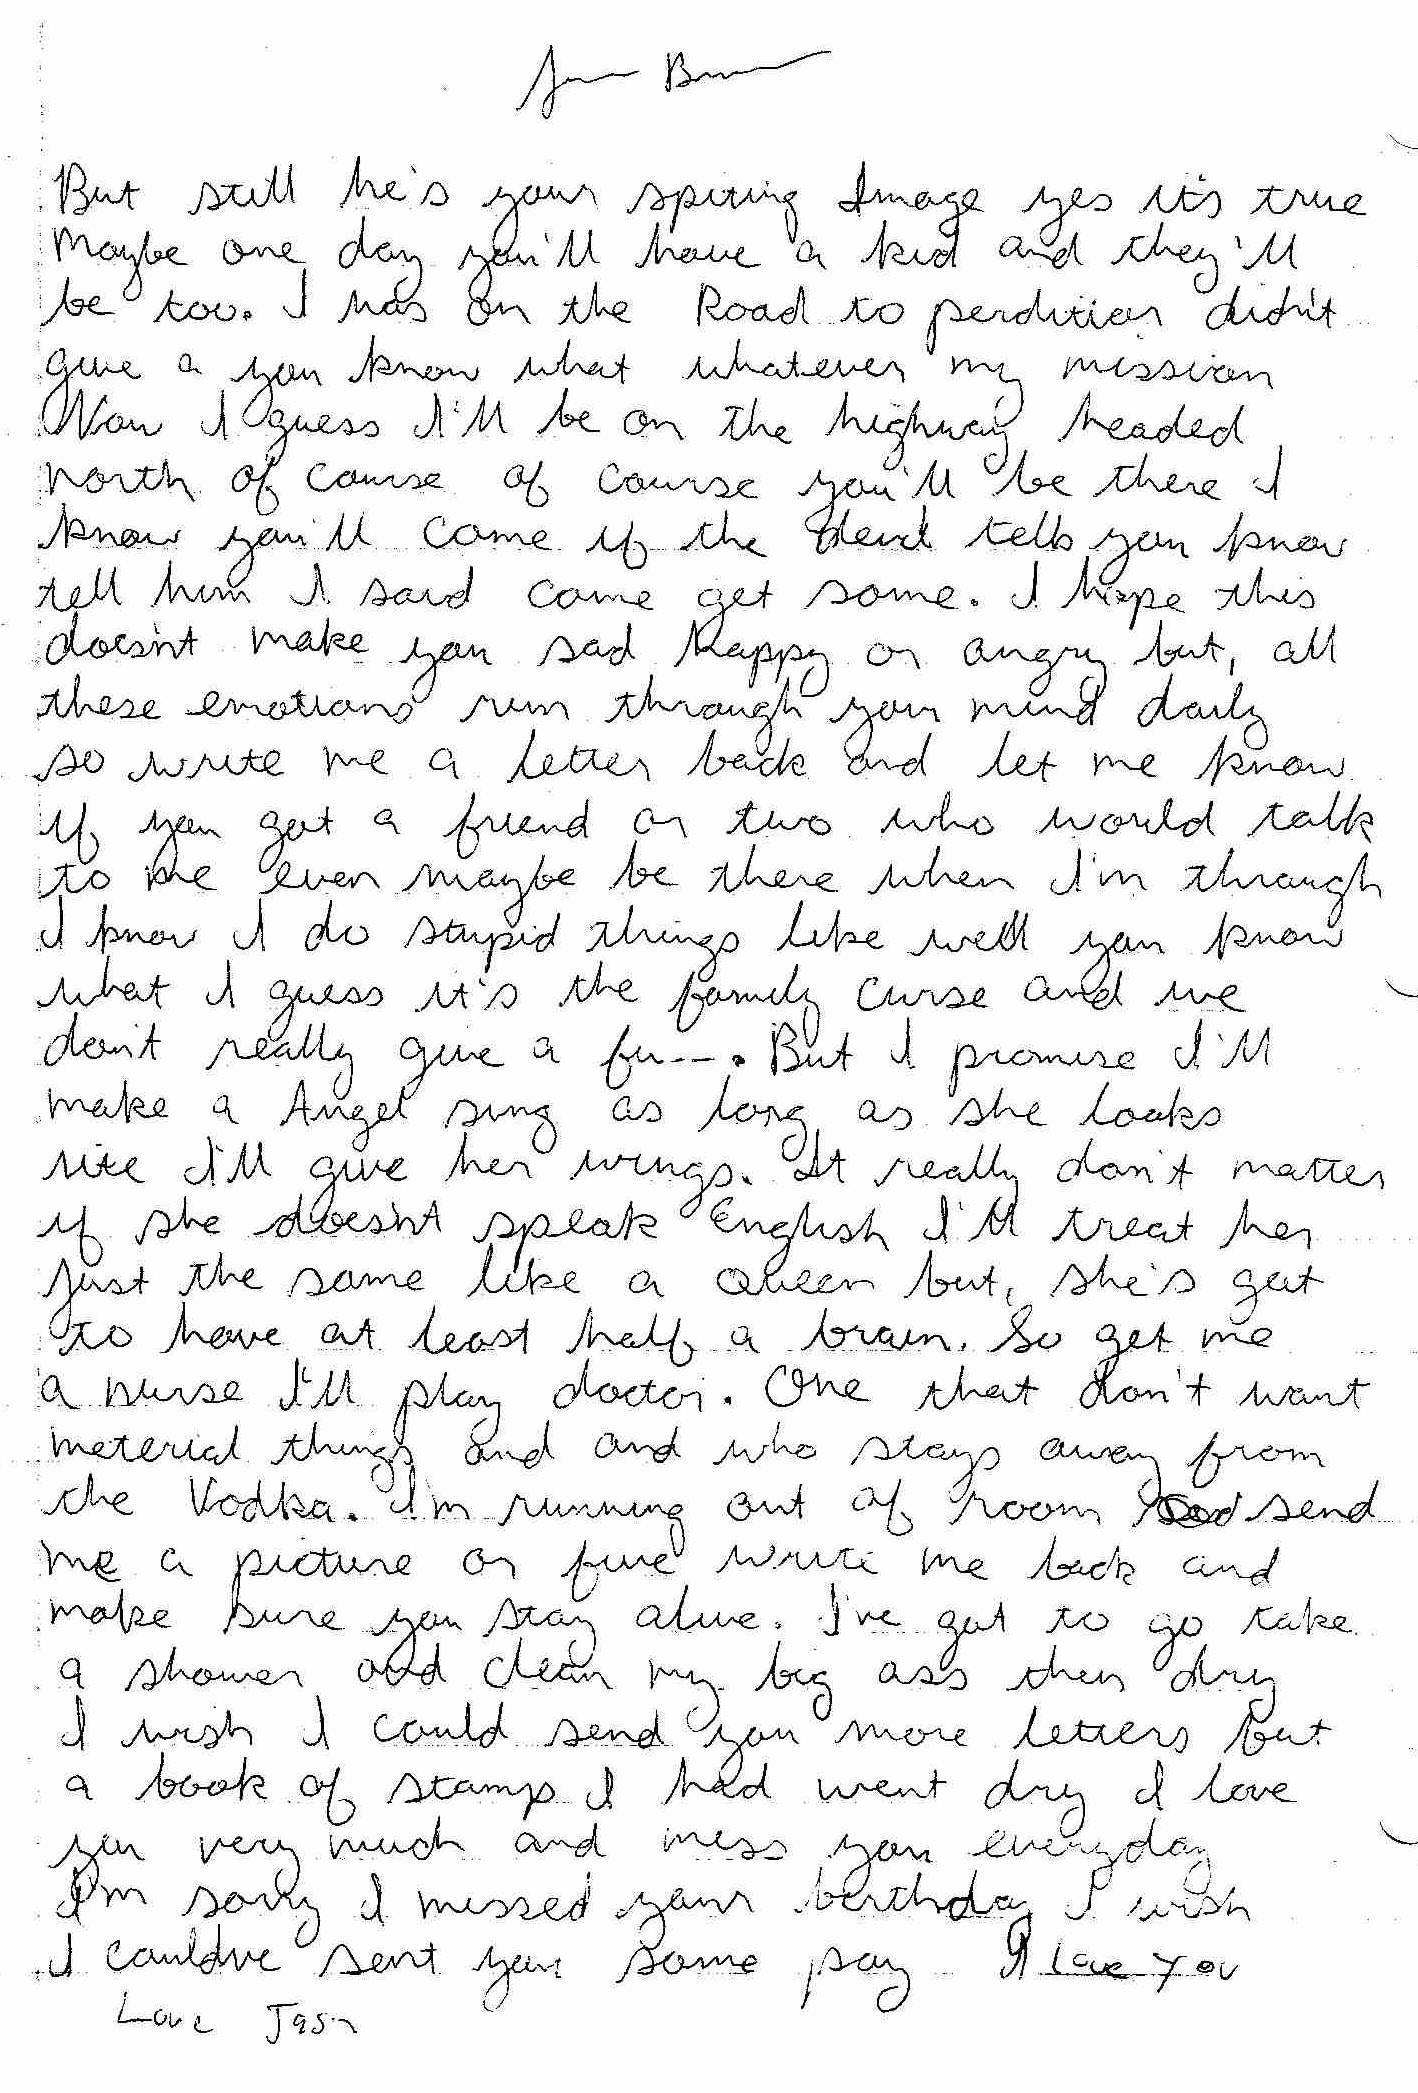 But still he's your spiting Image yes it's true
Maybe one day you'll have a kid and they'll
be too. I was on the Road to perdition didn't
give a you know what whatever my mission
Now I guess I'll be on the highway headed
north of course of course you'll be there I
know you'll come if the devil tells you know
tell him I said come get some. I hope this
doesn't make you sad happy or angry but, all
these emotions run through your mind daily
so write me a letter back and let me know
if you got a friend or two who would talk
to me even maybe be there when I'm through
I know I do stupid things like well you know
what I guess it's the family curse and we
don't really give a fu---. But I promise I'll
make a Angel sing as long as she looks
rite I'll give her wings. It really don't matter
if she doesn't speak English I'll treat her
just the same like a Queen but, she's got
to have at least half a brain. So get me
a nurse I'll play doctor. One that don't want
meterial things and and who stays away from
the Vodka. I'm running out of room send
me a picture or five write me back and
make sure you stay alive. I've got to go take
a shower and clean my big ass then dry
I wish I could send you more letters but
a book of stamps I had went dry I love
you very much and miss you everyday
I'm sorry I missed your birthday I wish
I couldve sent you some pay I Love You
Love Jason